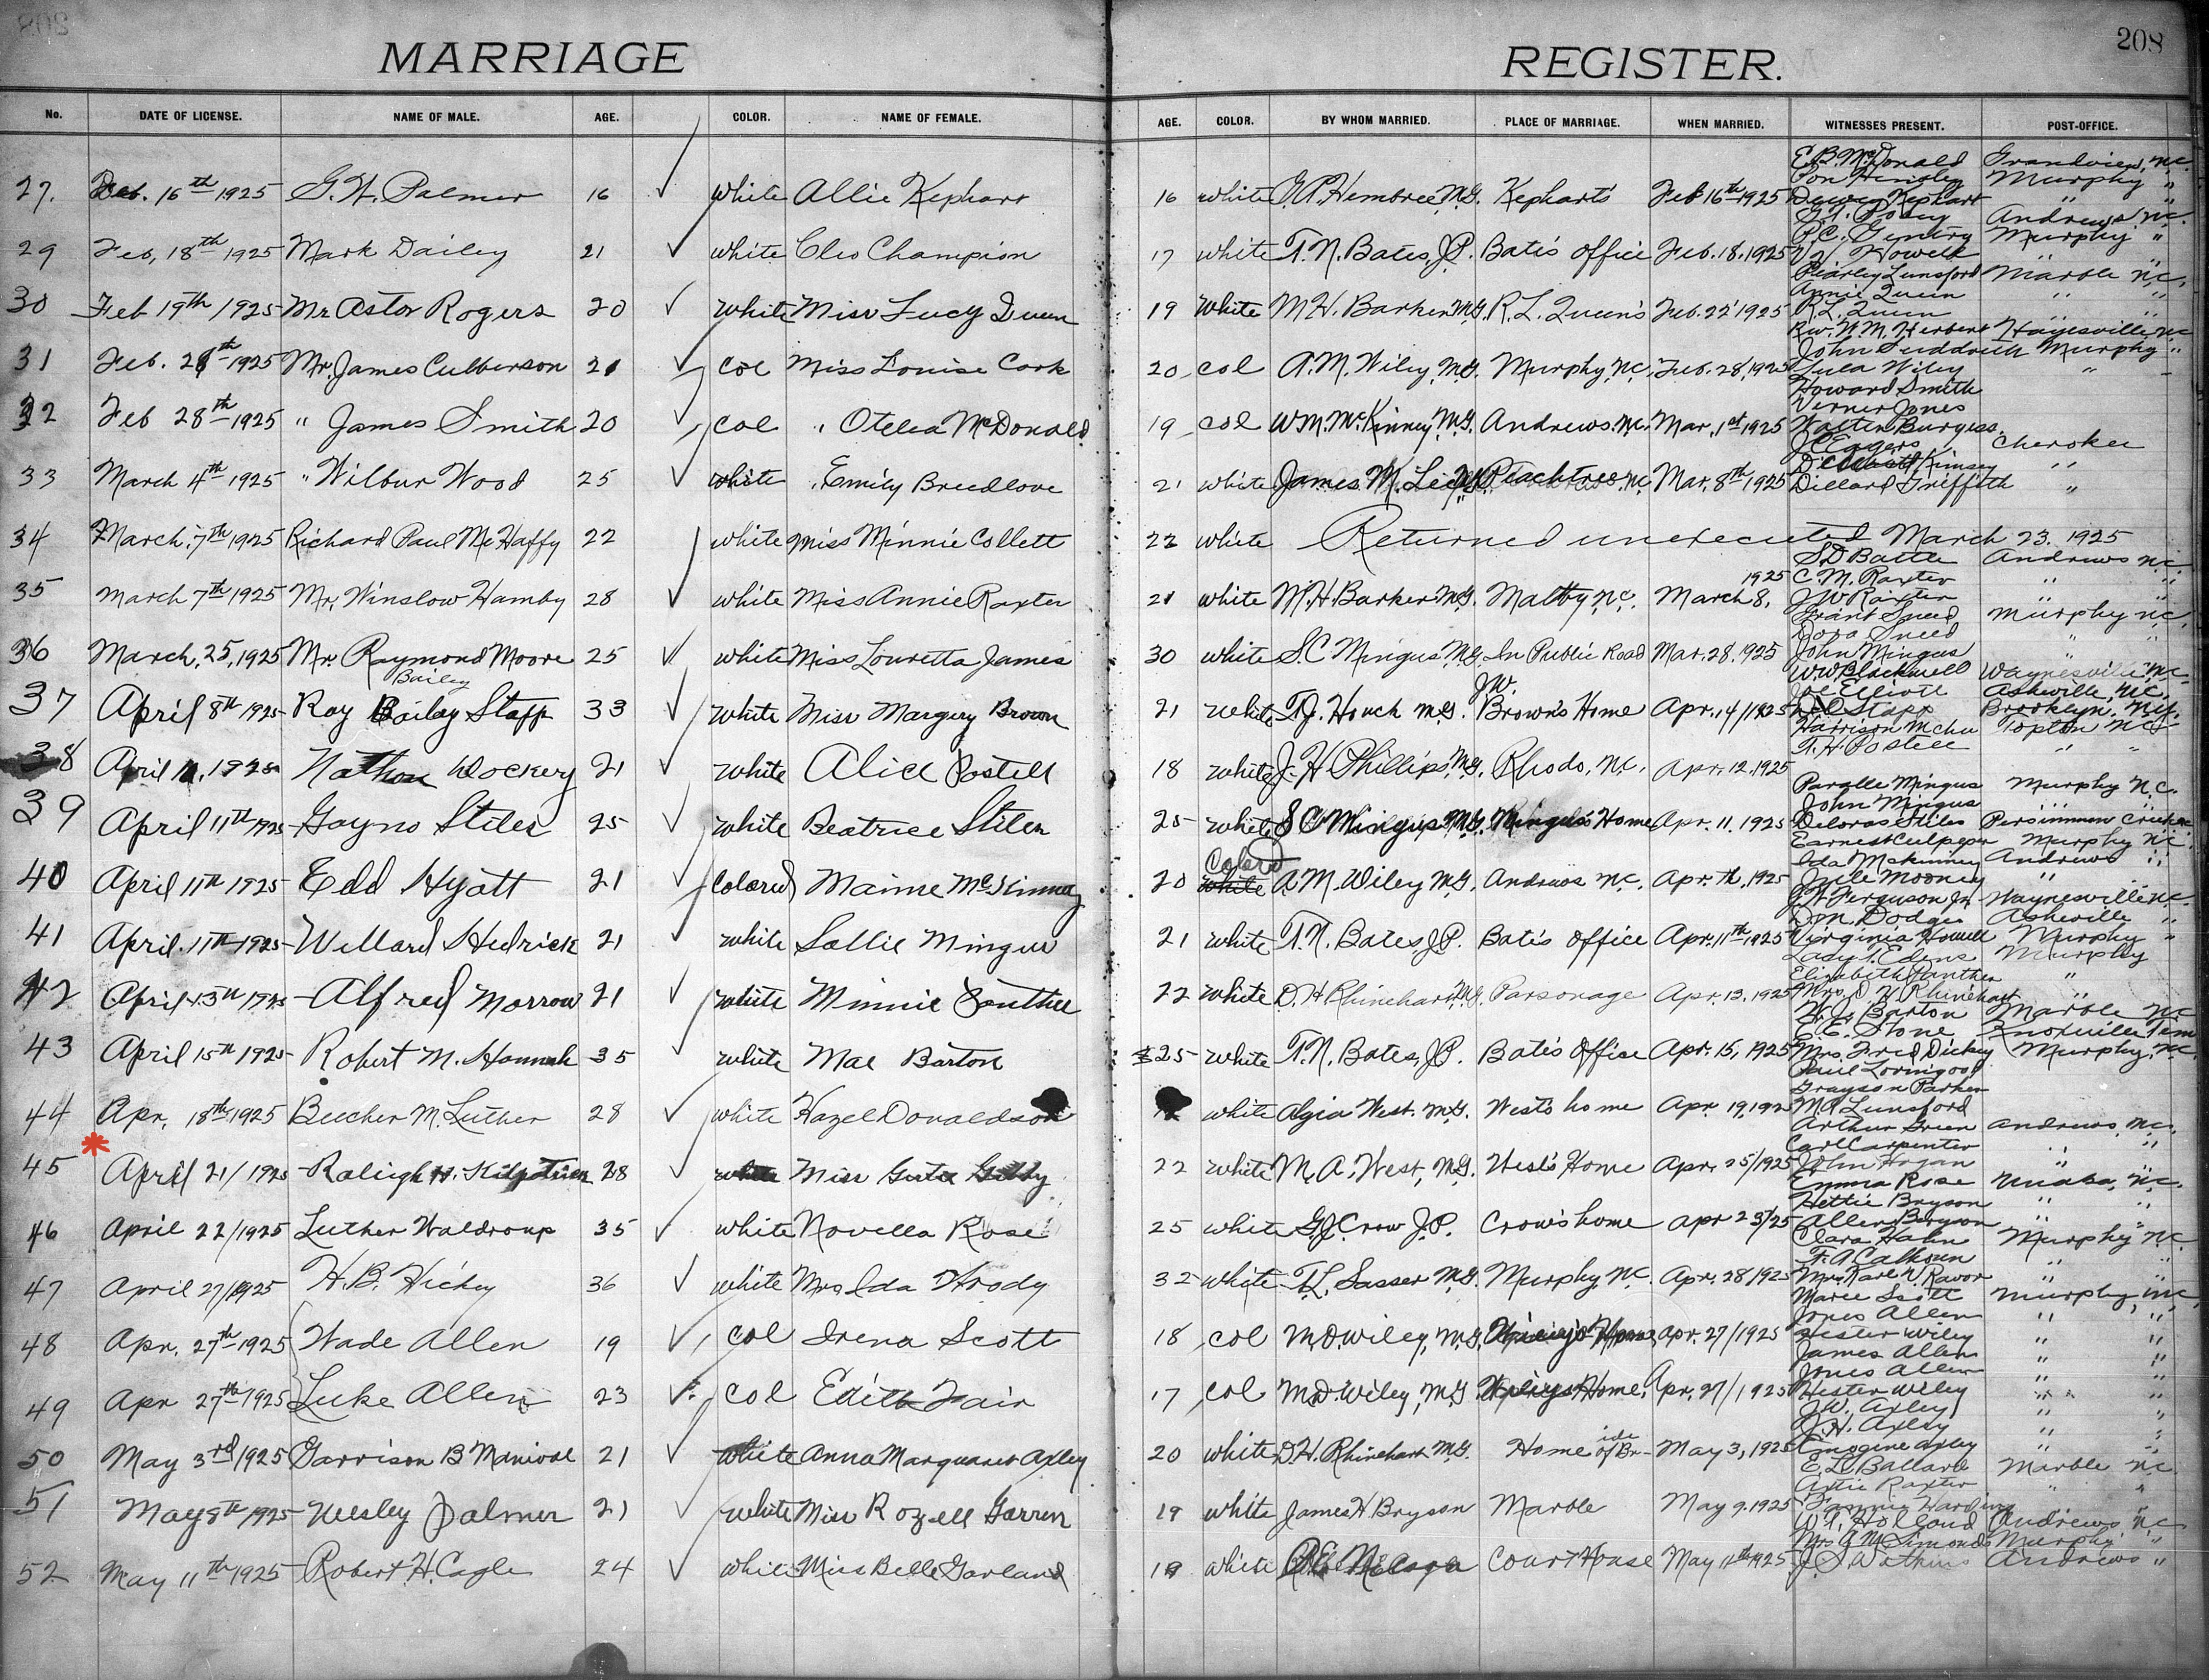 208
MARRIAGE REGISTER.
No. DATE OF LICENSE. NAME OF MALE. AGE. COLOR. NAME OF FEMALE. AGE. COLOR. BY WHOM MARRIED. PLACE OF MARRIAGE. WHEN MARRIED. WITNESSES PRESENT. POST-OFFICE.
E.B. McDonald Grandview, N.C.
Murphy "
27. Feb. 16th 1925 G.W. Palmer 16 white Allie Kephart 16 white Hembree, M.G. Kephart's Feb 16th 1925 Dewey Kephart "
Andrews N.C.
P.C. Gentry Murphy "
29 Feb, 18th 1925 Mark Dailey 21 white Cleo Champion 17 white T.N. Bates, J.P. Bate's Office Feb. 18. 1925 Howell "
Pearley Lunsford Marble N.C.
Annie Queen " "
30 Feb 19th 1925 Mr Astor Rogers 20 white Miss Lucy Queen 19 white M.H. Barker M.G. R.L. Queen's Feb. 22 1925 R.L. Queen " "
W.M. Herbert Hayesville, N.C.
John Suddreth Murphy "
31 Feb. 1925 Mr. James Culberson 21 col Miss Louise Cook 20 col A.M. Wiley, M.G. Murphy, N.C. Feb. 28, 1925 Lula Wiley "
Howard Smith
Verner Jones
32 Feb 28th 1925 " James Smith 20 col " Otelea McDonald 19 col W.M. McKinney, M.G. Andrews, N.C. Mar. 1st 1925 Walter Burgess
Cherokee
Kimsey "
33 March 4th 1925 " Wilbur Wood 25 white " Emily Breedlove 21 white James M. Peachtree N.C. Mar. 8th 1925 Dillard Griffith "
34 March, 7th 1925 Richard Paul McHaffy 22 white Miss Minnie Collett 22 white Returned unexecuted March 23. 1925
S.D. Battle Andrews N.C.
C.M. Raxter " "
35 March 7th 1925 Mr. Winslow Hamby 28 white Miss Annie Raxter 21 white M.H. Barker M.G. Maltby N.C. March 8, 1925 J.W. Raxter " "
Grant Sneed Murphy N.C.
Dora Sneed " "
36 March, 25, 1925 Mr. Raymond Moore 25 white Miss Louretta James 30 white S.C Mingus M.G. In Public Road Mar. 28. 1925 John Mingus
W.W. Blackwell Waynesville N.C.
Joe Elliott Asheville, N.C.
37 April 8th 1925 Roy Bailey Stapp 33 white Miss Margery Brown 21 white T.J. Houck M.G. J.W. Brown's Home Apr. 14/1925 Stapp Brooklyn, N.Y.
Bailey
Harrison Topton N.C.
38 April 1925 Nathan Dockery 21 white Alice Postell 18 white J.H Phillips M.G. Rhodo, N.C. Apr. 12. 1925 T.H. Postell " "
Mingus Murphy N.C.
John Mingus " "
39 April 11th 1925 Gayno Stiles 25 white Beatrice Stiles 25 white S C Mingus M.G. Mingus's Home Apr. 11. 1925 Deloras Stiles Persimmon Creek
Earnest Culpeper Murphy N.C.
Ida McKinney Andrews "
40 April 11th 1925 Edd Hyatt 21 Colored Maime McKinney 20 Colored A.M. Wiley M.G. Andrews N.C. Apr. 1925 Mooney "
Ferguson Jr. Waynesville N.C.
Don Dodge Asheville "
41 April. 11th 1925 Willard Hedrick 21 white Sallie Mingus 21 white T.N. Bates, J.P. Bate's Office Apr. 11th 1925 Virginia Howell Murphy "
Edens Murphy
Elizabeth Panther "
42 April 13th 1925 Alfred Morrow 21 white Minnie 22 white D.H. Rhinehart, M.G. Parsonage Apr. 13. 1925 Mrs. D.H. Rhinehart "
Barton Marble N.C.
C.E. Stone Knoxville Tenn
43 April 15th 1925 Robert M. Hannah 35 white Mae Barton 25 white T.N. Bates, J.P. Bate's Office Apr. 15, 1925 Mrs. Fred Dickey Murphy, N.C.
Paul Lovingood
Grayson Parker
44 Apr. 18th 1925 Bucher M. Luther 28 white Hazel Donaldson white Algia West, M.G. West's home Apr 19, 1925 Lunsford
Arthur Green Andrews, N.C.
Carl Carpenter " "
45 April 21/1925 Raleigh 28 white Miss 22 white M.A. West, M.G. West's Home Apr. 25/1925 John Hogan "
Emma Rose Unaka, N.C.
Hettie Bryson " "
46 April 22/1925 Luther Waldroup 35 white Novella Rose 25 white G.J. Crow J.P. Crow's home Apr 23/25 Allen Bryson " "
Clara Hahn Murphy N.C.
F.A. Calhoun " "
47 April 27/1925 H.B. Hickey 36 white Mrs Ida 32 white T.L. Sasser M.G. Murphy, N.C. Apr. 28/1925 Mrs. "
Maree Scott Murphy, N.C.
Jones Allen " "
48 Apr. 27th 1925 Wade Allen 19 col Irena Scott 18 col M.D. Wiley, M.G. Home Apr. 27/1925 Hester Wiley " "
James Allen " "
Jones Allen " "
49 Apr 27th 1925 Luke Allen 23 col Edith Fair 17 col M.D. Wiley, M.G. Wiley's Home, Apr. 27/1925 Hester Wiley " "
J.W. Axley " "
J.H. Axley " "
50 May 3rd 1925 Garrison B 21 white Anna Axley 20 white D.H. Rhinehart M.G. Home of Bride May 3, 1925 Emogene Axley " "
E.L. Ballard Marble N.C.
Artie Raxter " "
51 May 8th 1925 Wesley Palmer 21 white Miss Rozell Garren 19 white James H Bryson Marble May 9. 1925 Fannie Harding " "
W.T. Holland Andrews N.C.
Mrs. A.M. Simonds Murphy "
52 May 11th 1925 Robert H. Cagle 24 white Miss Belle Garland 19 white Court House May 11th 1925 J.S. Watkins Andrews "